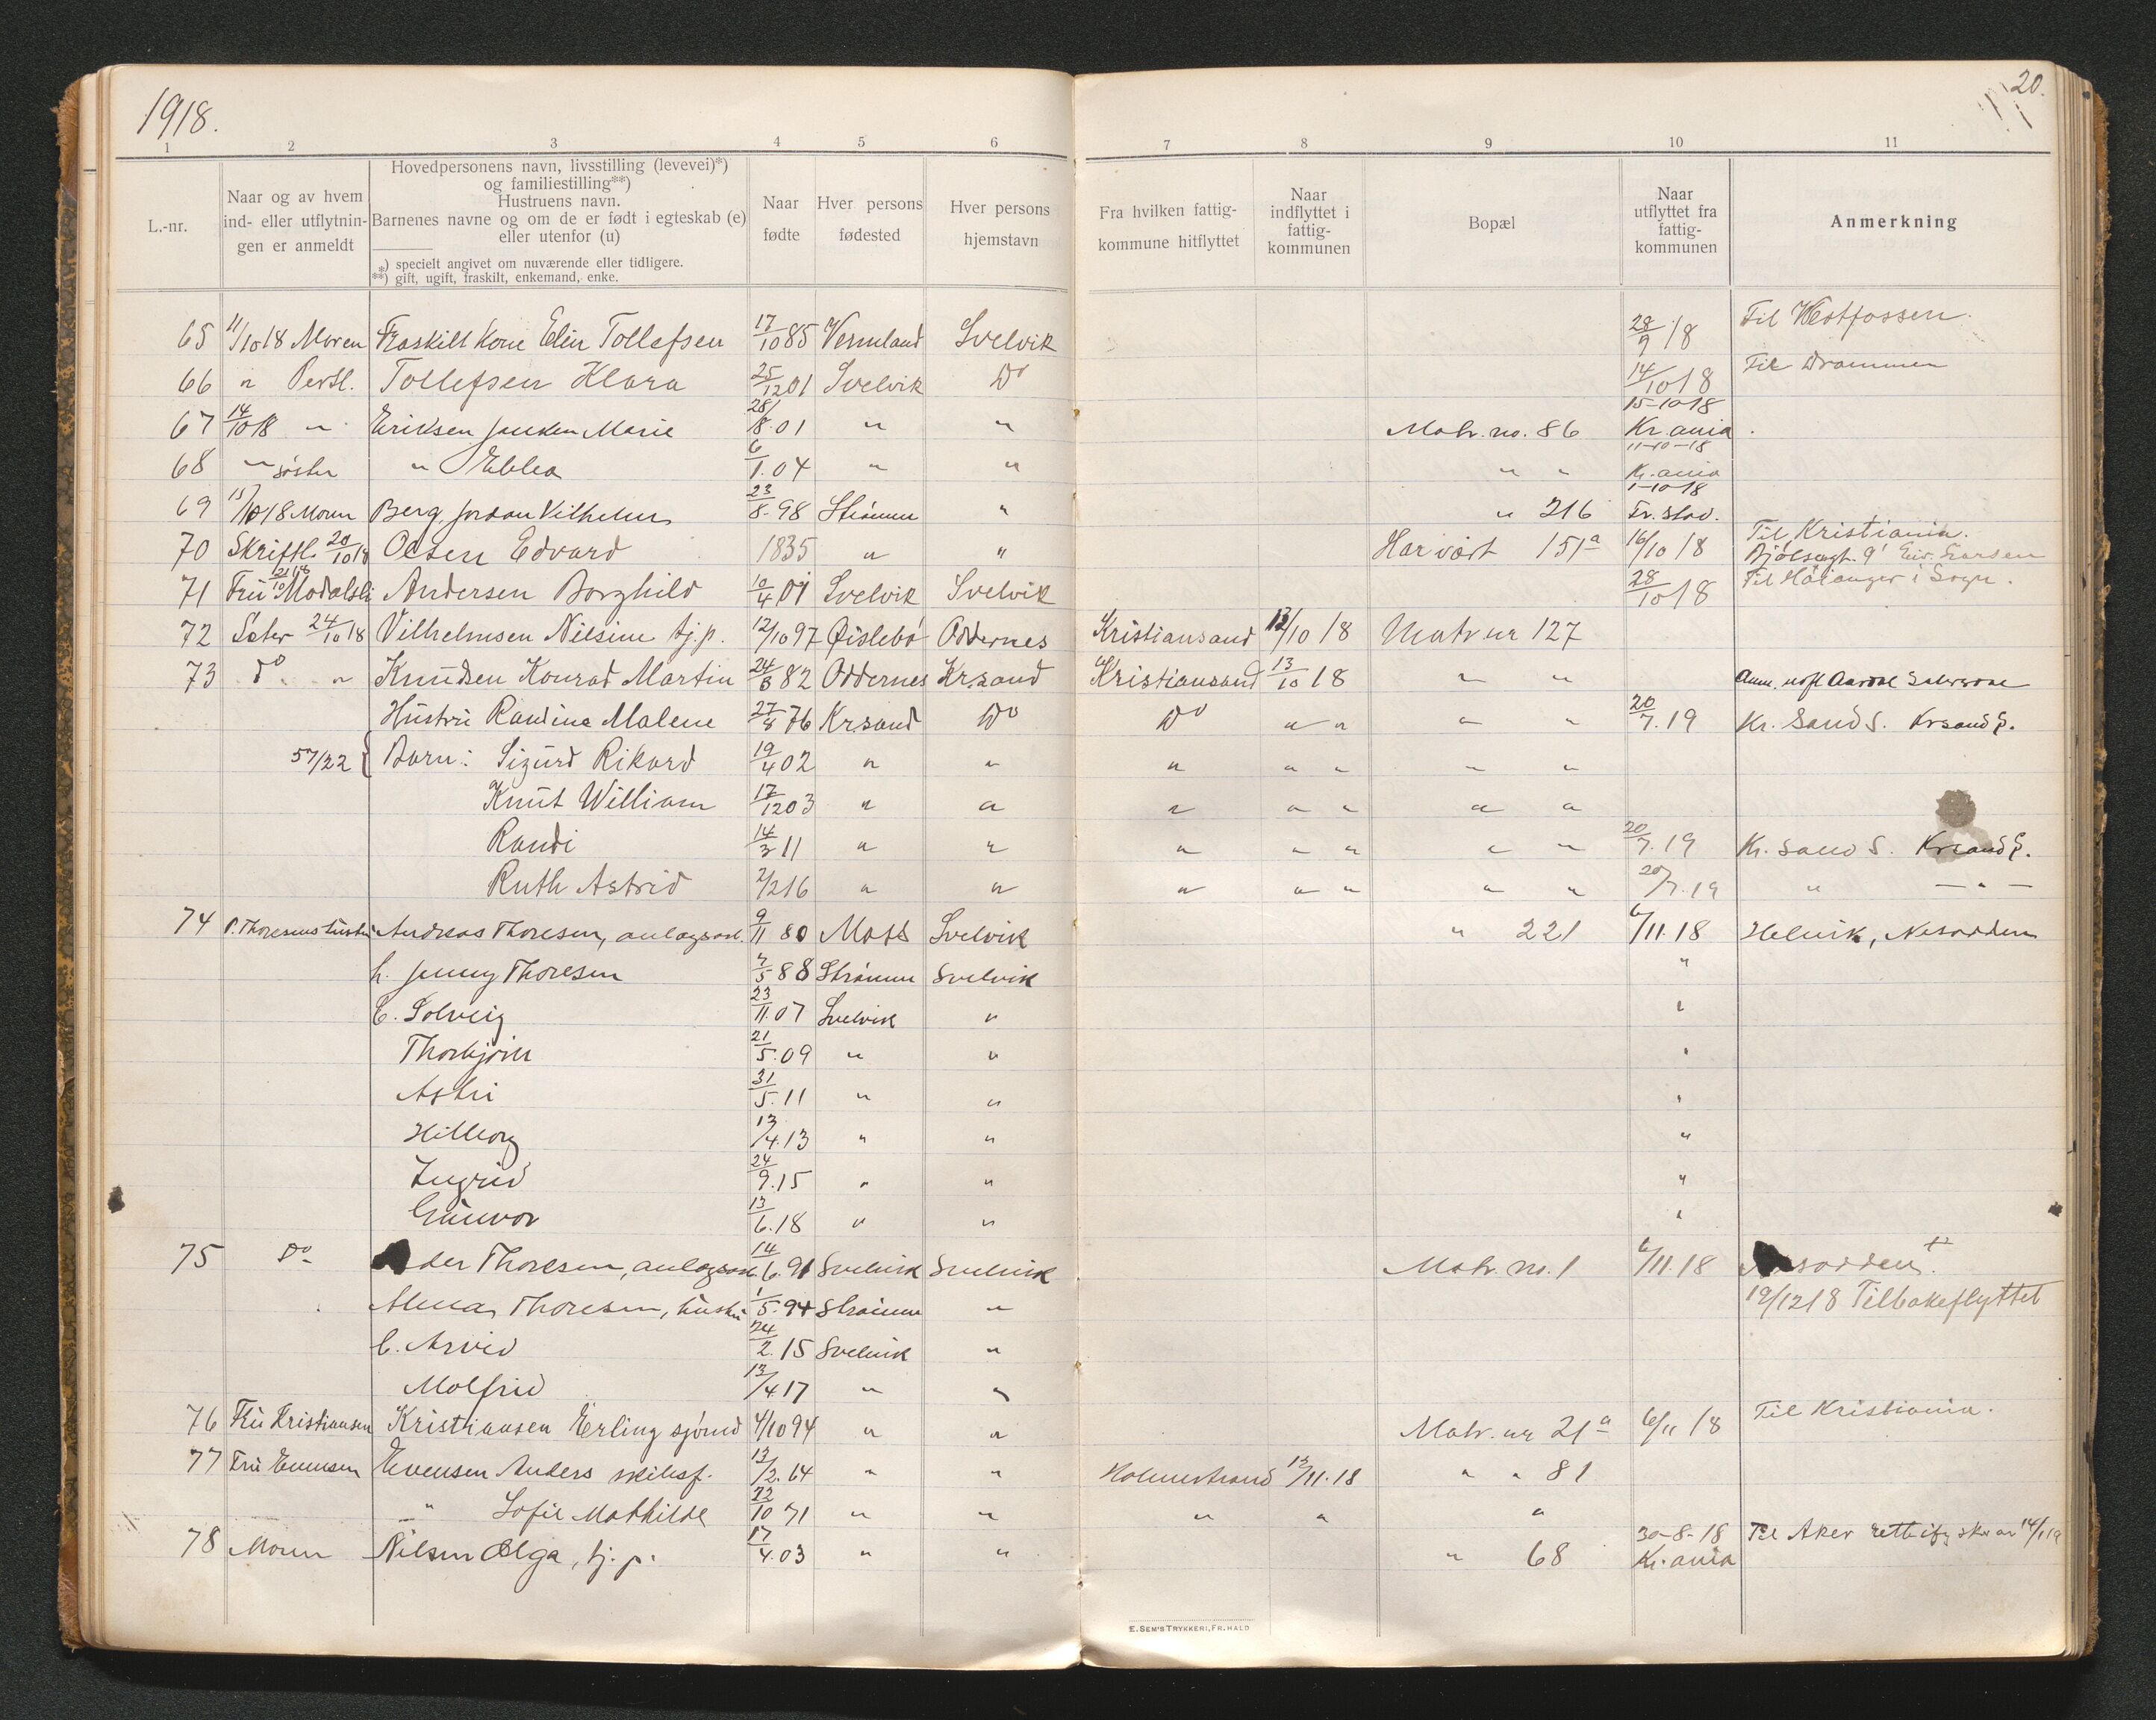 1918.
20.
1 2 3 4 5 6 7 8 9 10 11
L.-nr.
Naar og av hvem
ind- eller utflytnin-
gen er anmeldt
Hovedpersonens navn, livsstilling (levevei)*)
og familiestilling**)
Hustruens navn.
Barnenes navne og om de er født i egteskab (e)
eller utenfor (u)
*) specielt angivet om nuværende eller tidligere.
**) gift, ugift, fraskilt, enkemand, enke.
Naar
fødte
Hver persons
fødested
Hver persons
hjemstavn
Fra hvilken fattig-
kommune hitflyttet
Naar
indflyttet i
fattig-
kommunen
Bopæl
Naar
utflyttet fra
fattig-
kommunen
Anmerkning
65 11/10 18 Moren Fraskilt Kone Elin Tollefsen 17/10 85 Vermland Svelvik 28/9 18 Til Vestfossen.
66 " Persl. Tollefsen Klara 25/12 01 Svelvik Do 14/10 18 Til Drammen
67 14/10 18 " Eriksen Marie 28/8. 01 " " Matr. no. 86 15-10-18 Kr.ania
68 " søster " Ebba 6/1. 04 " " " " 11-10-18 Kr.ania
69 15/10 18 Moren Berg, Vilhelm 23/8. 98 Strømm " " 216 1-10-18 Fr.stad.
70 Skriftl. 20/10 18 Olsen Edvard 1835 " " Har vært 151a 16/10 18 Til Kristiania.
Bjølsengt. 9 Larsen
71 Fru 21/10 18 Modalsli Andersen Borghild 10/4 01 Svelvik Svelvik 28/10 18 Til Høianger i Sogn.
72 Sater 24/10 18 Vilhelmsen Nilsine tj.p. 12/10 97 Øislebø Oddernes Kristiansand 12/10 18 Matr nr 127
73 Do " Knudsen Konrad Martin 24/3 82 Oddernes Kr.sand Kristiansand 13/10 18 " "
Hustru Randine Malene 27/4 76 Krsand Do Do " " " " 20/7. 19 Kr. Sand S. Krsand S.
57/22 { Barn: Sigurd Rikard 19/4 02 " " " " " " "
Knut William 17/12 03 " " " " " " "
Randi 14/3 11 " " " " " " " 20/7. 19 Kr. sand S. Krsand S.
Ruth Astrid 2/2 16 " " " " " " " 20/7. 19 " — " —
74 Andreas Thoresen, 9/11 80 Moss Svelvik " 221 6/11. 18 Helvik, Nesodden
h. Jenny Thoresen 7/5 88 Strømm Svelvik "
b. Solveig 23/11. 07 Svelvik " "
Thorbjørn 21/5. 09 " " "
Astri 31/5. 11 " " "
Hilborg 13/4. 13 " " "
Ingrid 24/9. 15 " " "
Gunvor 13/6. 18 " " "
75 Do Thoresen, 14/6. 91 Svelvik Svelvik Matr. no. 1 6/11. 18
Thoresen, hustru 1/5. 94 Strømm " 19/12 18 Tilbakeflyttet
b. Arvid 24/2. 15 Svelvik "
Molfrid 13/4. 17 " "
76 Fru Kristiansen Kristiansen Erling sjømd 4/10 94 " " Matr. nr 21a 6/11 18 Til Kristiania.
77 Fru Evensen Evensen Anders skibsf. 13/2. 64 " " Holmestrand 13/11. 18 " " 81
" Sofie Mathilde 22/10 71 " " " " "
78 Moren Nilsen Olga, tj. p. 17/4. 03 " " " 68 30-8-18 Kr.ania Til Aker 14/1 19
E. SEM'S TRYKKERI, FR.HALD